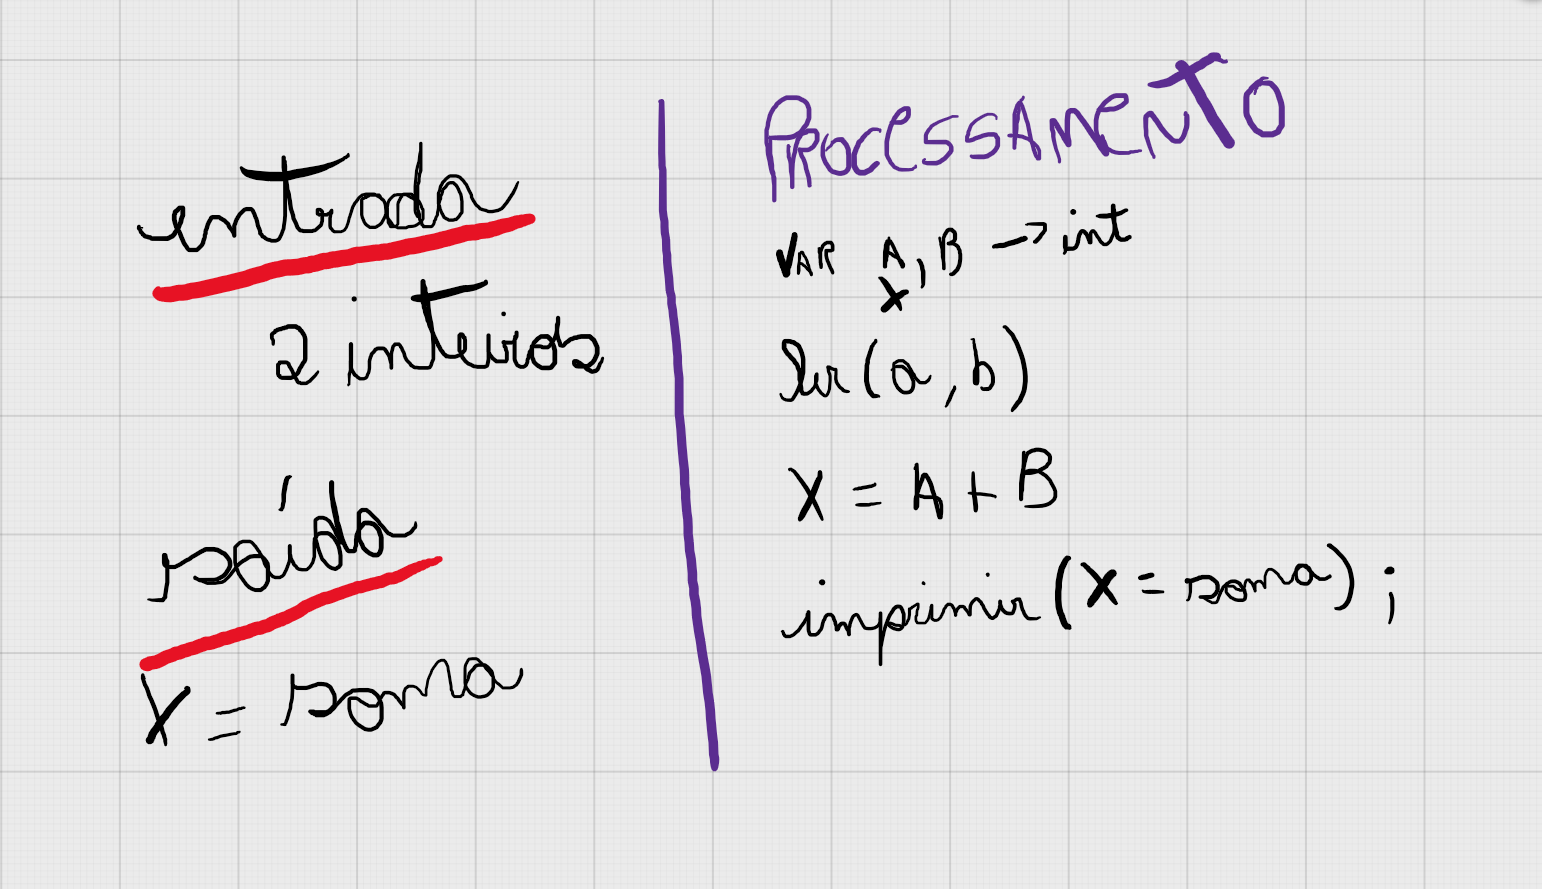 entrada
2 inteiros
saída
X = soma
PROCESSAMENTO
VAR A, B -> int
X
ler(a, b)
X = A + B
imprimir (X = soma) ;